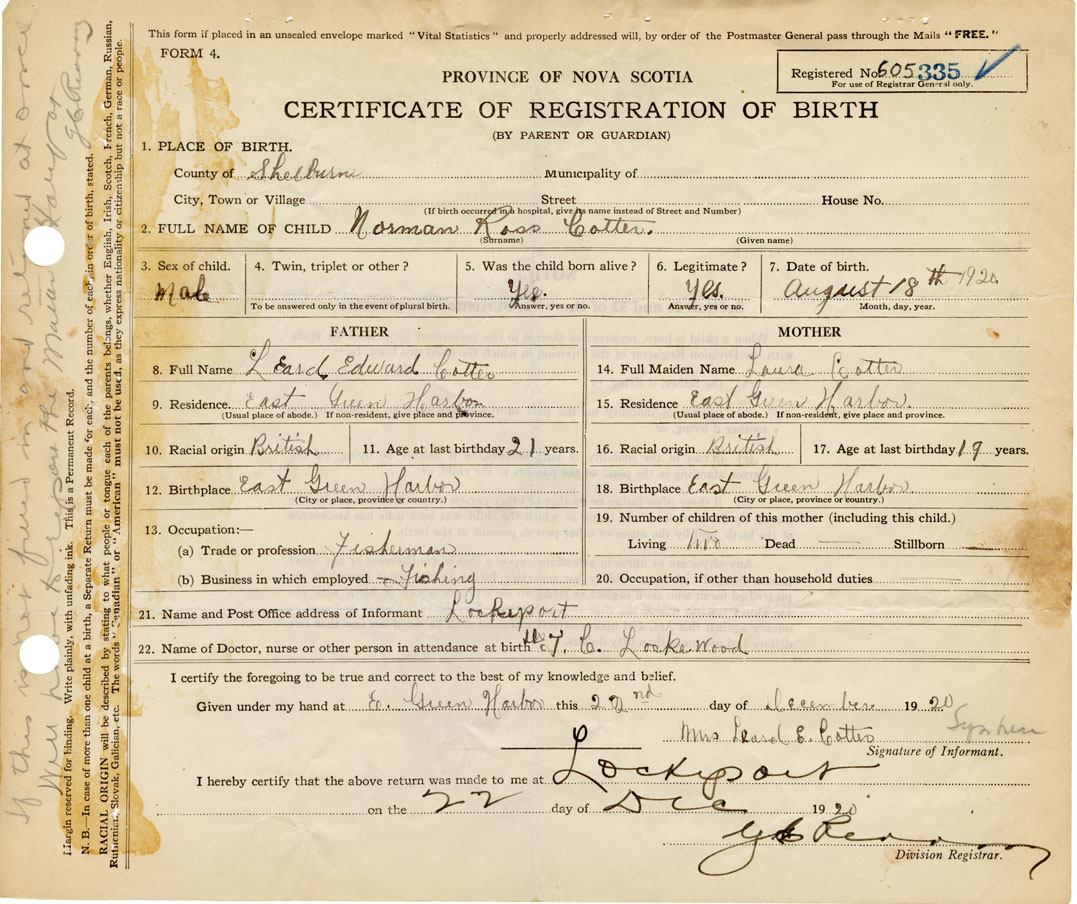 This form if placed in an unsealed envelope marked "Vital Statistics" and properly addressed will, by order of the Postmaster General pass through the Mails "FREE."
FORM 4.
PROVINCE OF NOVA SCOTIA
Registered No. 605335
For use of Registrar General only.
CERTIFICATE OF REGISTRATION OF BIRTH
(BY PARENT OR GUARDIAN)
1. PLACE OF BIRTH.
County of Shelburne Municipality of
City, Town or Village Street House No.
(If birth occurred in a hospital, give its name instead of Street and Number)
2. FULL NAME OF CHILD Norman Ross Cotter.
(Surname) (Given name)
3. Sex of child. 4. Twin, triplet or other? 5. Was the child born alive? 6. Legitimate? 7. Date of birth.
Male Yes. Yes. August 18th 1920
To be answered only in the event of plural birth. Answer, yes or no. Answer, yes or no. Month, day, year.
FATHER
8. Full Name Leard Edward Cotter
9. Residence. East Green Harbor
(Usual place of abode.) If non-resident, give place and province.
10. Racial origin British 11. Age at last birthday 21 years.
12. Birthplace East Green Harbor
(City or place, province or country.)
13. Occupation:—
(a) Trade or profession Fisherman
(b) Business in which employed Fishing
MOTHER
14. Full Maiden Name Laura Cotter
15. Residence East Green Harbor.
(Usual place of abode.) If non-resident, give place and province.
16. Racial origin British 17. Age at last birthday 19 years.
18. Birthplace East Green Harbor
(City or place, province or country.)
19. Number of children of this mother (including this child.)
Living two Dead Stillborn
20. Occupation, if other than household duties
21. Name and Post Office address of Informant Lockeport
22. Name of Doctor, nurse or other person in attendance at birth C. Locke Wood
I certify the foregoing to be true and correct to the best of my knowledge and belief.
Given under my hand at E. Green Harbor this 22nd day of December 1920
Mrs Leard E. Cotter
Signature of Informant.
I hereby certify that the above return was made to me at Lockeport
on the 22 day of Dec 1920
Division Registrar.
If this is not filled in and returned at once
Will have to report the Matter
Margin reserved for binding. Write plainly, with unfading ink. This is a Permanent Record.
N. B.—In case of more than one child at a birth, a Separate Return must be made for each, and the number of each, in order of birth, stated.
RACIAL ORIGIN will be described by stating to what people or tongue each of the parents belongs, whether English, Irish, Scotch, French, German, Russian,
Ruthenian, Slovak, Galician, etc. The words "Canadian" or "American" must not be used, as they express nationality or citizenship but not a race or people.